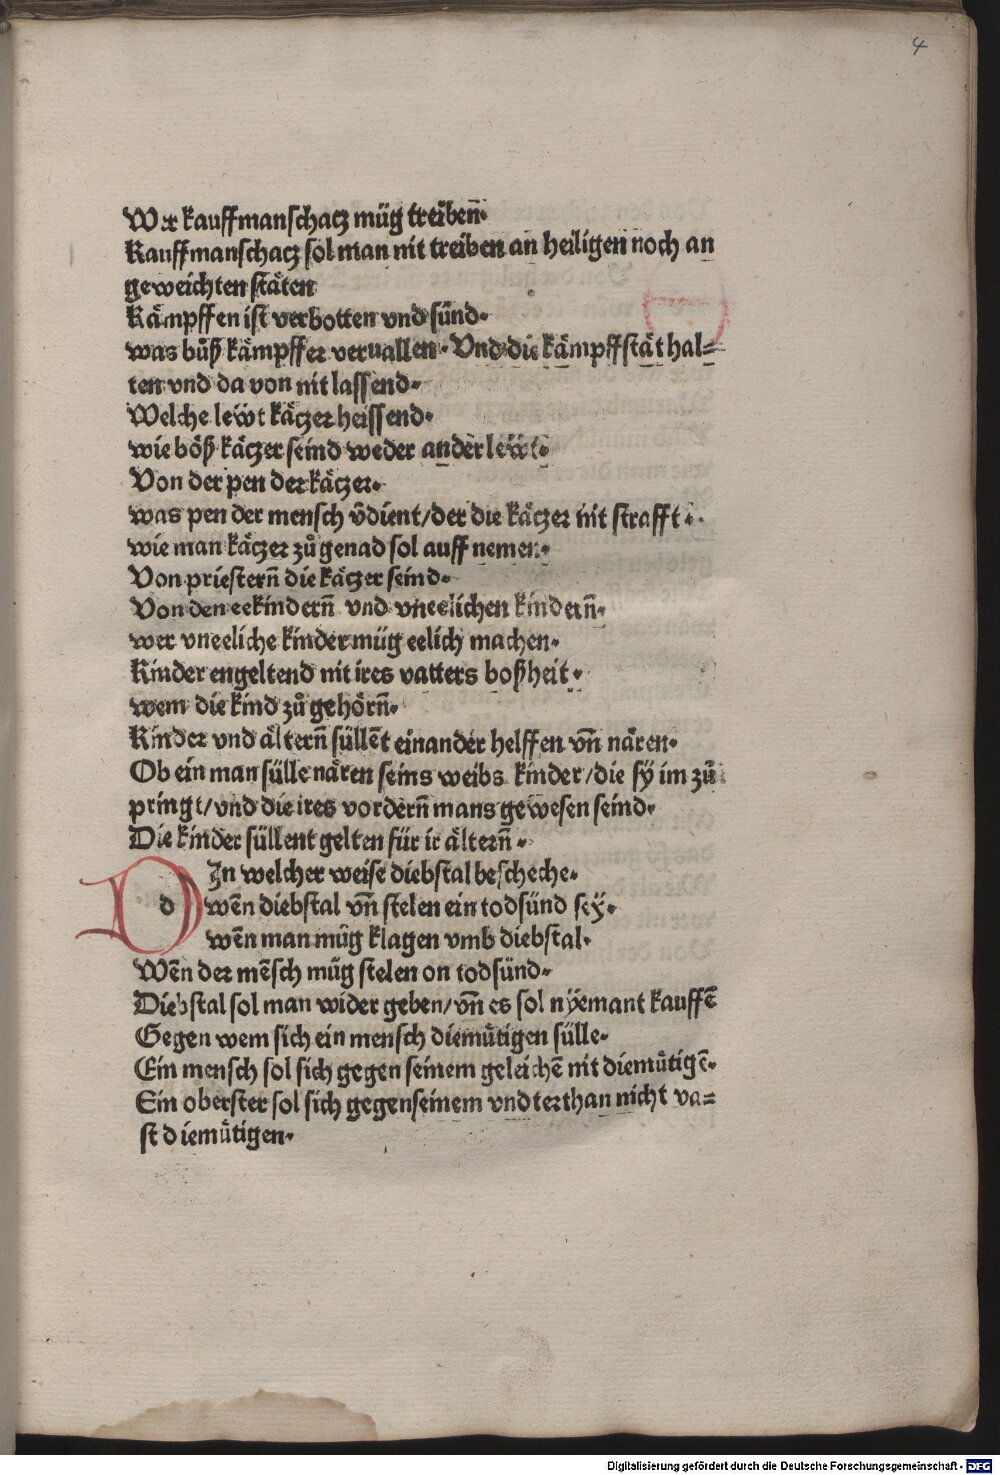 4
Wer kauffmanschatz müg treiben̄.
Kauffmanschatz sol man nit treiben an heiligen noch an
geweichten stäten
Kämpffen ist verbotten vnd sünd.
was bůß kämpffer veruallen. Vnd die kämpffstät hal=
ten vnd da von nit lassend.
Welche lewͤt kätzer heissend.
wie böß kätzer seind weder ander lewͤt.
Von der pen der kätzer.
was pen der mensch v̄dient/der die kätzer nit strafft.
wie man kätzer zů genad sol auff nemen.
Von priestern̄ die kätzer seind.
Von den eekindern̄ vnd vneelichen kindern̄.
wer vneeliche kinder müg eelich machen.
Kinder engeltend nit ires vatters boßheit.
wem die kind zů gehörn̄.
Kinder vnd ältern̄ süllēt einander helffen vn̄ nären.
Ob ein man sülle nären seins weibs kinder/die sy im zů
pringt/vnd die ires vordern̄ mans gewesen seind.
Die kinder süllent gelten für ir ältern̄.
d In welcher weise diebstal bescheche.
wēn diebstal vn̄ stelen ein todsünd sey.
wēn man müg klagen vmb diebstal.
Wēn der mēsch müg stelen on todsünd.
Diebstal sol man wider geben/vn̄ es sol nyemant kauffē
Gegen wem sich ein mensch diemütigen sülle.
Ein mensch sol sich gegen seinem geleichē nit diemütigē.
Ein oberster sol sich gegen seinem vndterthan nicht va=
st diemütigen.
Digitalisierung gefördert durch die Deutsche Forschungsgemeinschaft - DFG